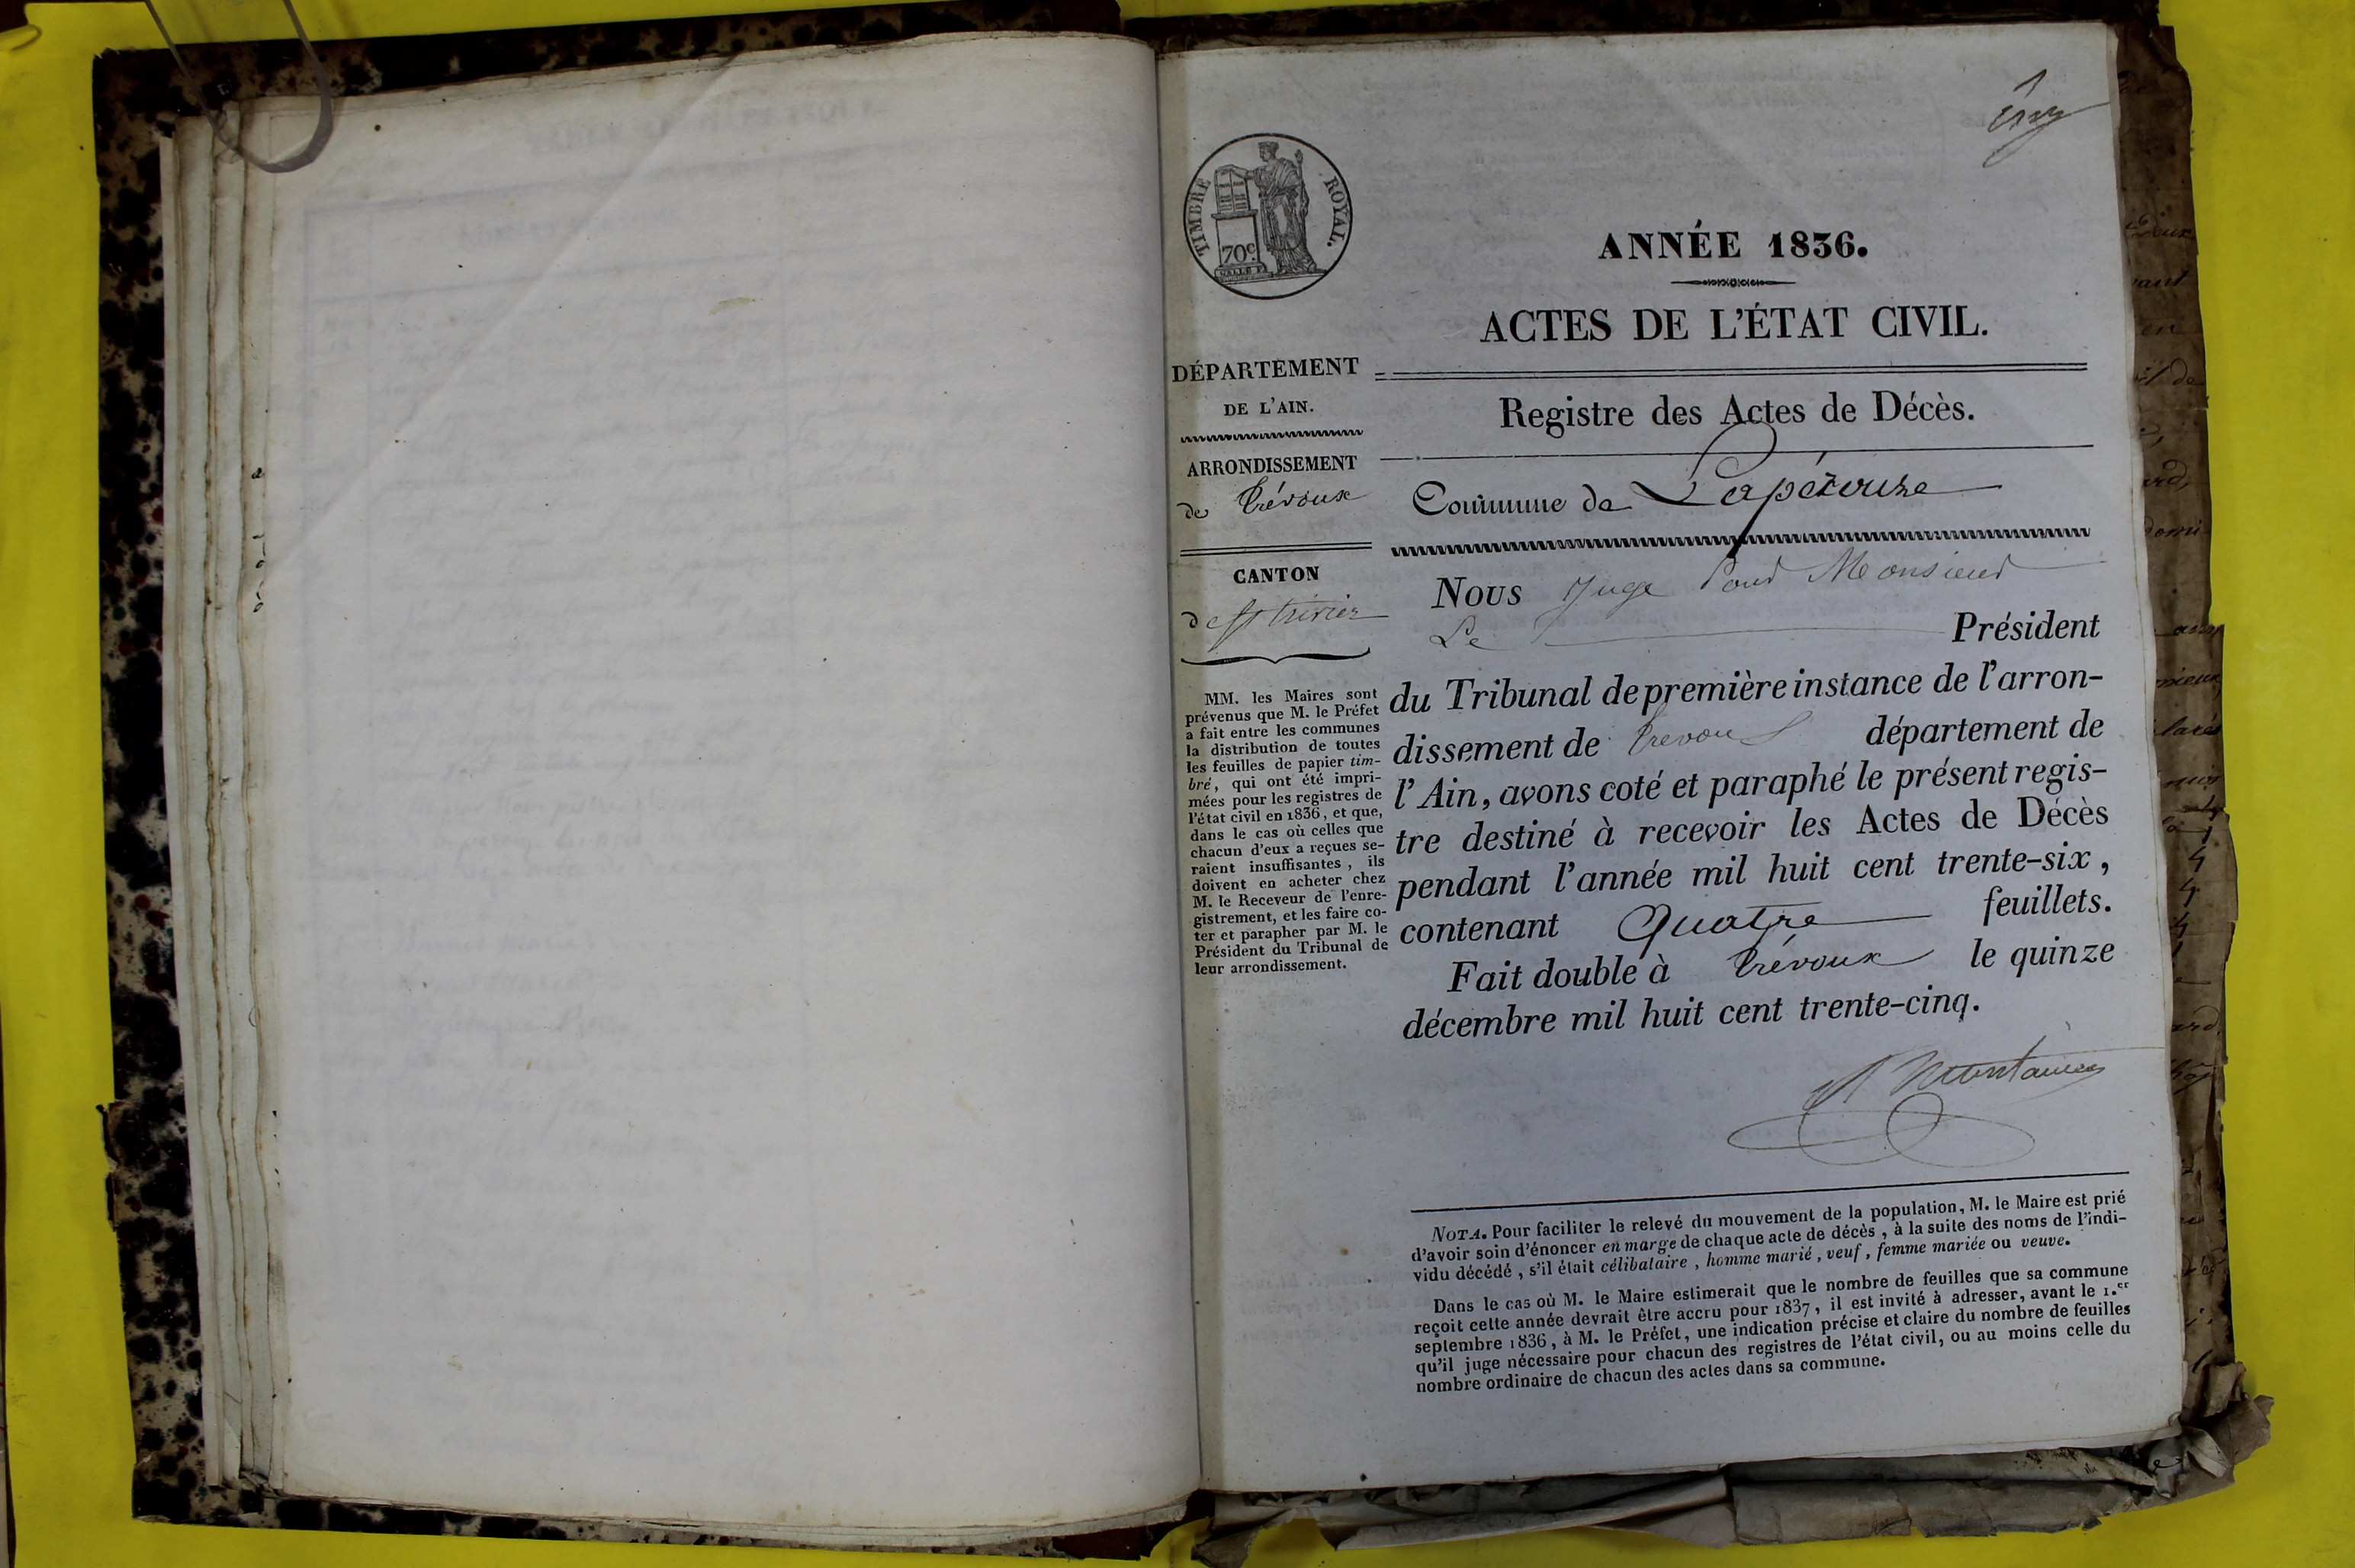 TIMBRE ROYAL.
70c.
ANNÉE 1836.
ACTES DE L'ÉTAT CIVIL.
DÉPARTEMENT
DE L'AIN.
ARRONDISSEMENT
de Trévoux
CANTON
de St trivier
MM. les Maires sont
prévenus que M. le Préfet
a fait entre les communes
la distribution de toutes
les feuilles de papier tim-
bré, qui ont été impri-
mées pour les registres de
l'état civil en 1836, et que,
dans le cas où celles que
chacun d'eux a reçues se-
raient insuffisantes, ils
doivent en acheter chez
M. le Receveur de l'enre-
gistrement, et les faire co-
ter et parapher par M. le
Président du Tribunal de
leur arrondissement.
Registre des Actes de Décès.
Commune de Lapérouse
Nous Juge Pour Monsieur
Le Président
du Tribunal de première instance de l'arron-
dissement de Trevoux département de
l'Ain, avons coté et paraphé le présent regis-
tre destiné à recevoir les Actes de Décès
pendant l'année mil huit cent trente-six,
contenant Quatre feuillets.
Fait double à Trévoux le quinze
décembre mil huit cent trente-cinq.
NOTA. Pour faciliter le relevé du mouvement de la population, M. le Maire est prié
d'avoir soin d'énoncer en marge de chaque acte de décès, à la suite des noms de l'indi-
vidu décédé, s'il était célibataire, homme marié, veuf, femme mariée ou veuve.
Dans le cas où M. le Maire estimerait que le nombre de feuilles que sa commune
reçoit cette année devrait être accru pour 1837, il est invité à adresser, avant le 1.er
septembre 1836, à M. le Préfet, une indication précise et claire du nombre de feuilles
qu'il juge nécessaire pour chacun des registres de l'état civil, ou au moins celle du
nombre ordinaire de chacun des actes dans sa commune.